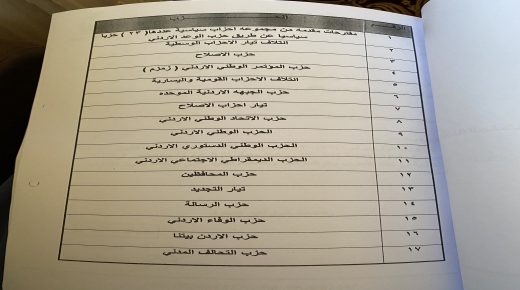 الرقم الحزب
١ مقترحات مقدمة من مجموعه احزاب سياسية عددها (٢٣) حزبا
سياسيا عن طريق حزب الوعد الاردني
٢ ائتلاف تيار الاحزاب الوسطية
٣ حزب الاصلاح
٤ حزب المؤتمر الوطني الاردني (زمزم)
٥ ائتلاف الاحزاب القومية واليسارية
٦ حزب الجبهه الاردنية الموحده
٧ تيار احزاب الاصلاح
٨ حزب الاتحاد الوطني الاردني
٩ الحزب الوطني الاردني
١٠ الحزب الوطني الدستوري الاردني
١١ الحزب الديمقراطي الاجتماعي الاردني
١٢ حزب المحافظين
١٣ تيار التجديد
١٤ حزب الرسالة
١٥ حزب الوفاء الاردني
١٦ حزب الاردن بيتنا
١٧ حزب التحالف المدني